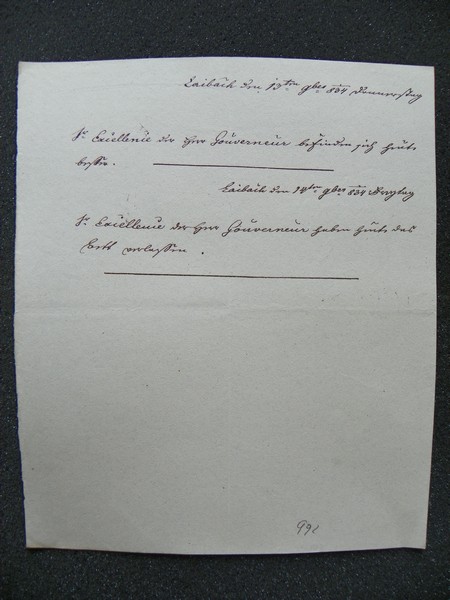 Laibach den 13ten 9ber 834 Donnerstag
Sr Excellenz der Herr Gouverneur befinden sich heute
besser.
Laibach den 14ten 9ber 834 Freytag
Sr Excellenz der Herr Gouverneur haben heute das
Bett verlassen.
992